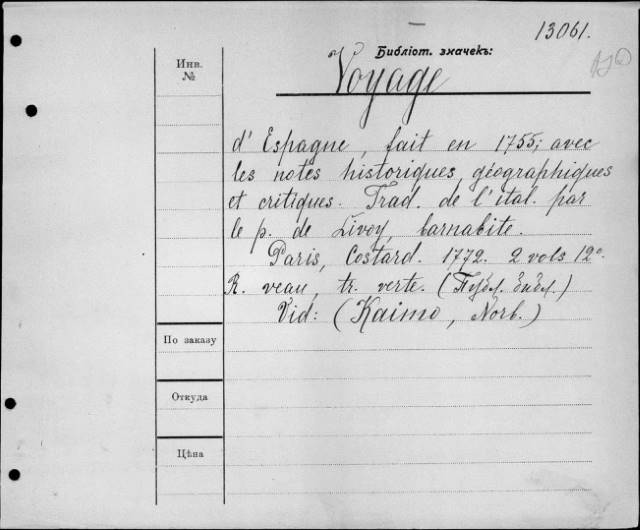 13061.
Библіот. значекъ:
Инв.
№
Voyage
d'Espagne, fait en 1755; avec
les notes historiques, géographiques
et critiques. Trad. de l'ital. par
le p. de Livoy, barnabite.
Paris, Costard. 1772. 2 vols 12°.
R. veau, tr. verte. (Публ. библ.)
Vid: (Kaimo, Norb.)
По заказу
Откуда
Цѣна